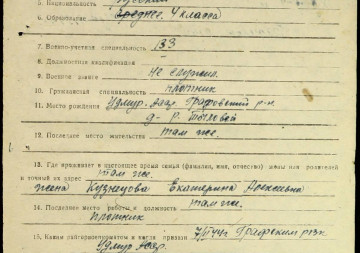 5. Национальность русский
6. Образование Среднее. 4 класса
7. Военно-учетная специальность 133
8. Должностная квалификация
9. Военное звание Не служил.
10. Гражданская специальность плотник
11. Место рождения Удмур. Асср. Графовский р-н
д-
12. Последнее место жительства там же.
13. Где проживает в настоящее время семья (фамилия, имя, отчество) жены или родителей
и точный их адрес там же.
жена Кузнецова Екатерина Алексеевна
14. Последнее место работы и должность там же.
плотник
15. Каким райгорвоенкоматом и когда призван Графским рвк.
Удмур Асср.